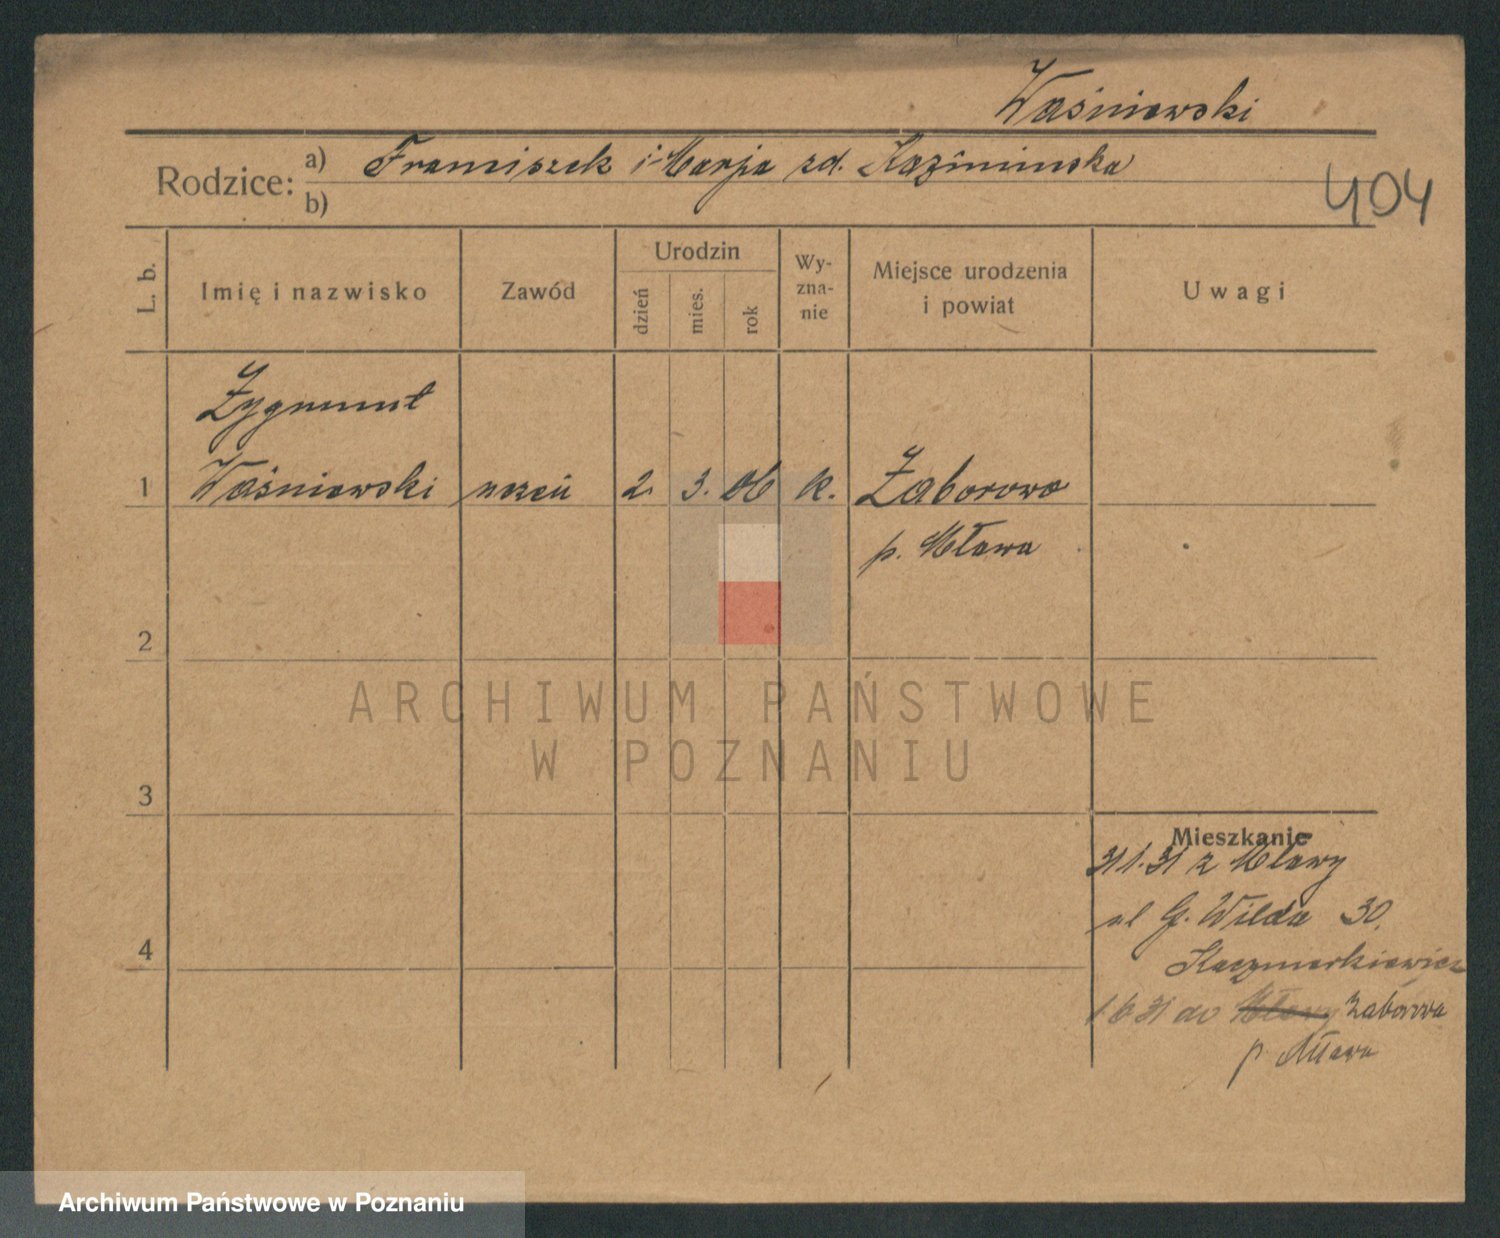 Waśniewski
Rodzice: a) Franciszek i Marja zd. Kaźmińska
b)
404
L. b. Imię i nazwisko Zawód Urodzin dzień mies. rok Wyznanie Miejsce urodzenia i powiat Uwagi
Zygmunt
1 Waśniewski uczeń 2. 3. 06 k. Zaborowo
p. Mława
2
ARCHIWUM PAŃSTWOWE
W POZNANIU
3
Mieszkanie
31.1.31 z Mławy
ul G. Wilda 30.
Kaczmarkiewicz
4
1 6 31 do Mławy Zaborowa
p. Mława
Archiwum Państwowe w Poznaniu